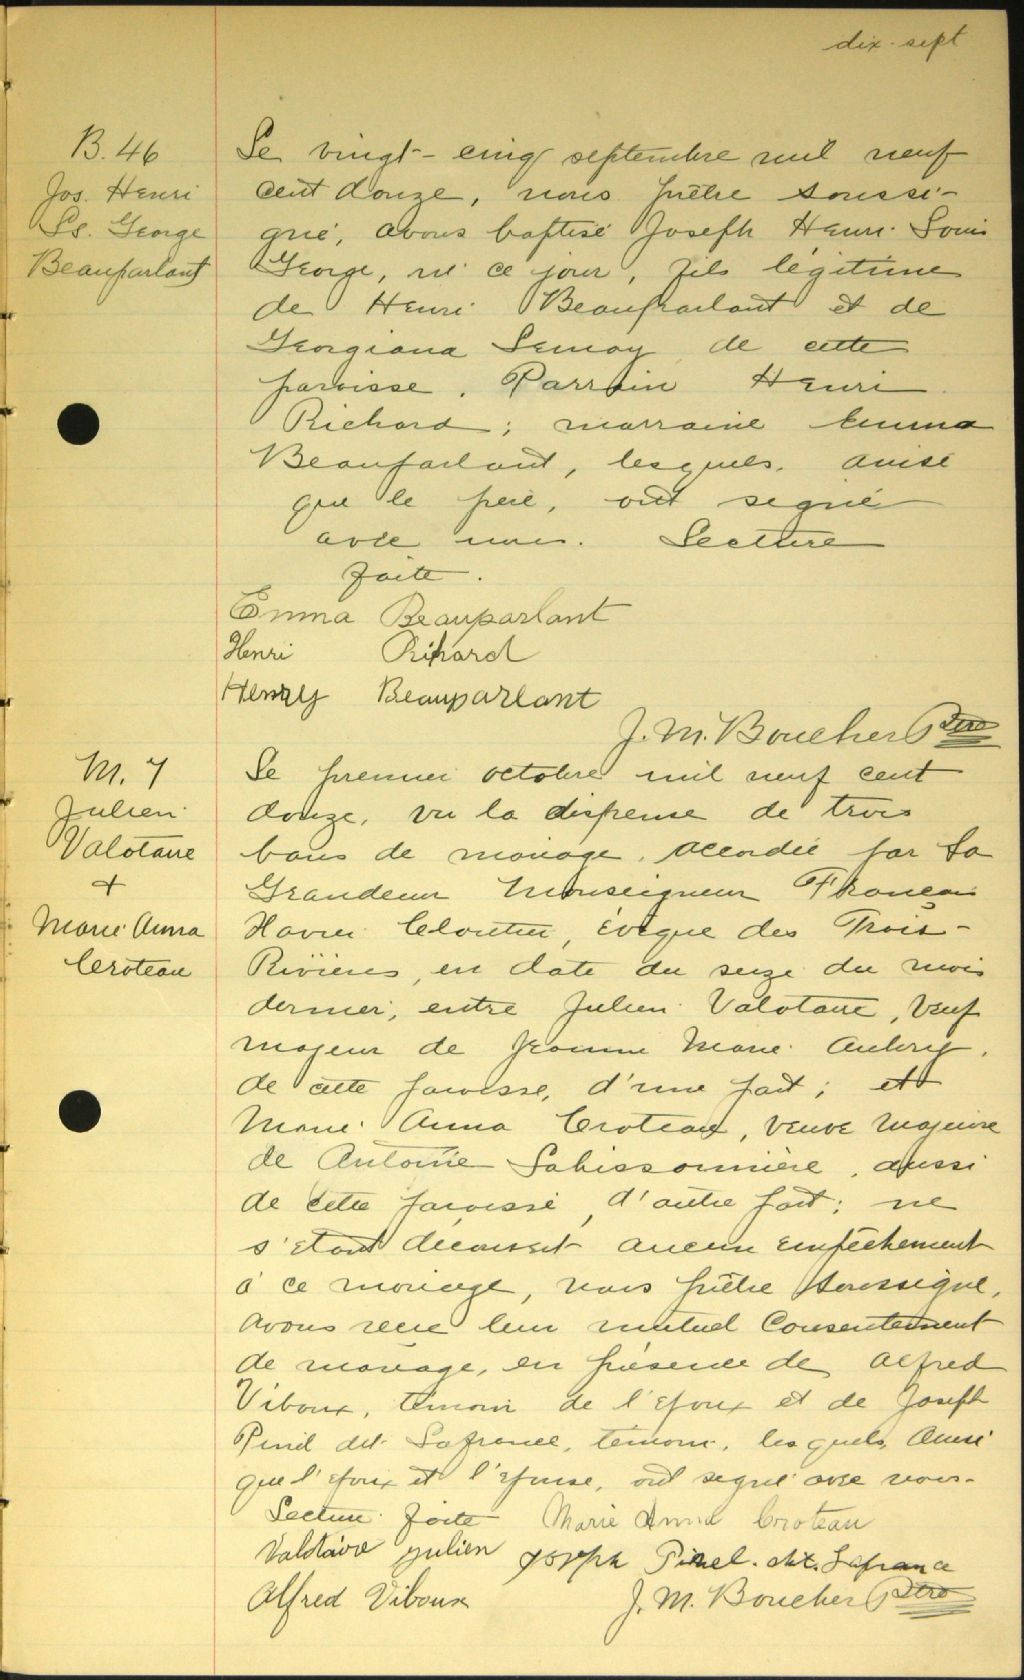 dix-sept
B. 46
Jos. Henri
Ls. George
Beauparlant
Le vingt-cinq septembre mil neuf
cent douze, nous prêtre soussi-
gné, avons baptisé Joseph Henri Louis
George, né ce jour, fils légitime
de Henri Beauparlant et de
Georgiana Lemay de cette
paroisse. Parrain Henri
Richard; marraine Emma
Beauparlant, lesquels, ainsi
que le père, ont signé
avec nous. Lecture
faite.
Emma Beauparlant
Henri Rihard
Henry Beauparlant
J. M. Boucher Ptre
M. 7
Julien
Valotaire
+
Marie Anna
Croteau
Le premier octobre mil neuf cent
douze, vu la dispense de trois
bans de mariage, accordée par Sa
Grandeur Monseigneur François
Xavier Cloutier, évêque des Trois-
Rivières, en date du seize du mois
dernier, entre Julien Valotaire, veuf
majeur de Jeanne Marie Aubry,
de cette paroisse, d'une part; et
Marie Anna Croteau, veuve majeure
de Antoine Labissonnière, aussi
de cette paroisse, d'autre part; ne
s'étant découvert aucun empêchement
à ce mariage, nous prêtre soussigné,
avons reçu leur mutuel consentement
de mariage, en présence de Alfred
Viboux, témoin de l'époux et de Joseph
Pinel dit Lafrance, témoin, lesquels, ainsi
que l'époux et l'épouse, ont signé avec nous.
Lecture faite Marie Anna Croteau
Valotaire Julien Joseph Pinel. dit. Lafrance
Alfred Viboux J. M. Boucher Ptre